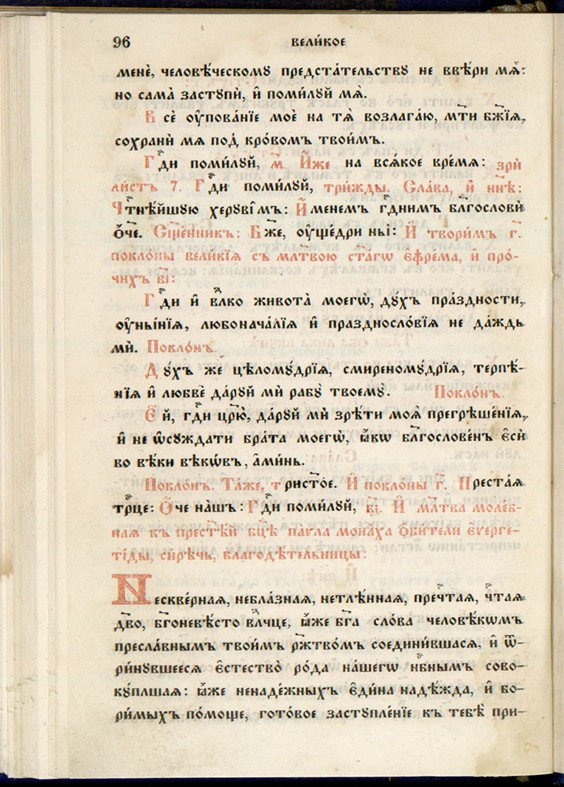 96
вели́кое
менѐ, человѣ́ческомꙋ предста́тельствꙋ не ввѣ́ри мѧ̀:
но сама̀ застꙋпѝ, и҆ поми́лꙋй мѧ̀.
Всѐ ᲂу҆пова́нїе моѐ на тѧ̀ возлага́ю, мт҃и бж҃їѧ,
сохранѝ мѧ под̾ кро́вомъ твои́мъ.
Гдⷭ҇и поми́лꙋй, м҃. И҆́же на всѧ́кое вре́мѧ: зрѝ
ли́стъ 7. Гдⷭ҇и поми́лꙋй, три́жды. Сла́ва, и҆ нн҃ѣ:
Чⷭ҇тнѣ́йшꙋю херꙋві̑мъ: И҆́менемъ гдⷭ҇нимъ бл҃гословѝ
ѻ҆́ч҃е. Сщ҃е́нникъ: Бж҃е, ᲂу҆ще́дри ны̀: И҆ твори́мъ г҃.
покло́ны вели̑кїѧ съ мл҃твою ст҃а́гѡ є҆фре́ма, и҆ про́-
чихъ в҃і:
Гдⷭ҇и и҆ влⷣко живота̀ моегѡ̀, дꙋ́хъ пра́здности,
ᲂу҆ны́нїѧ, любонача́лїѧ и҆ праздносло́вїѧ не да́ждь
мѝ. Покло́нъ.
Дꙋ́хъ же цѣломꙋ́дрїѧ, смиреномꙋ́дрїѧ, терпѣ́-
нїѧ и҆ любвѐ да́рꙋй мѝ рабꙋ̀ твоемꙋ̀. Покло́нъ.
Е҆́й, гдⷭ҇и цр҃ю̀, да́рꙋй мѝ зрѣ́ти моѧ̑ прегрѣшє́нїѧ,
и҆ не ѡ҆сꙋжда́ти бра́та моегѡ̀, ꙗ҆́кѡ бл҃гослове́нъ є҆сѝ
во вѣ́ки вѣкѡ́въ, а҆ми́нь.
Покло́нъ. Та́же, трист҃о́е. И҆ покло́ны г҃. Прест҃а́ѧ
трⷪ҇це: Ѻ҆́ч҃е на́шъ: Гдⷭ҇и поми́лꙋй, в҃і. И҆ мл҃тва моле́б-
наѧ къ прест҃ѣ́й бцⷣѣ па́ѵла мона́ха ѻ҆би́тели є҆ѵерге-
ті́ды, си́рѣчь, благодѣ́тельницы:
Нескве́рнаѧ, небла́знаѧ, нетлѣ́ннаѧ, пречⷭ҇таѧ, чⷭ҇таѧ
дв҃о, бг҃оневѣ́сто влⷣчце, ꙗ҆́же бг҃а сло́ва человѣ́кѡмъ
пресла́внымъ твои́мъ ржⷭ҇тво́мъ соедини́вшаѧ, и҆ ѿ-
ри́нꙋвшеесѧ є҆стество̀ ро́да на́шегѡ нбⷭ҇нымъ сово-
кꙋ́пльшаѧ: ꙗ҆́же ненаде́жныхъ є҆ди́на наде́жда, и҆ бо-
ри́мыхъ по́моще, гото́вое застꙋпле́нїе къ тебѣ̀ при-